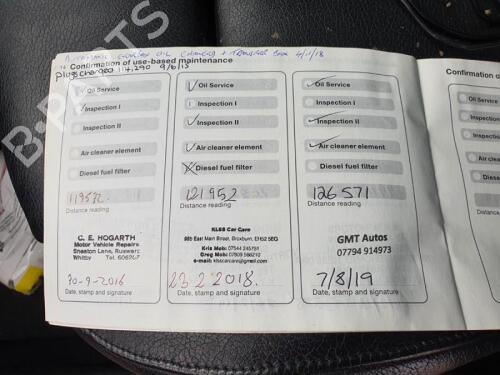 Automatic Gearbox OIL Changed + Transfer Box 4/1/18
Confirmation of use-based maintenance
plugs changed 114,290 9/6/15
Oil Service
Inspection I
Inspection II
Air cleaner element
Diesel fuel filter
Distance reading
C. E. HOGARTH
Motor Vehicle Repairs
Sneaton Lane, Ruswarp
Whitby
30-9-2016
Date, stamp and signature
Oil Service
Inspection I
Inspection II
Air cleaner element
Diesel fuel filter
121952
Distance reading
KLSS Car Care
East Main Street, Broxburn, EH52 5EG
Kris Mob: 07544 245791
Greg Mob: 07809 566210
e-mail: klsscarcare@gmail.com
23 2 2018.
Date, stamp and signature
Oil Service
Inspection I
Inspection II
Air cleaner element
Diesel fuel filter
126571
Distance reading
GMT Autos
07794 914973
7/8/19
Date, stamp and signature
Confirmation o
B-PARTS